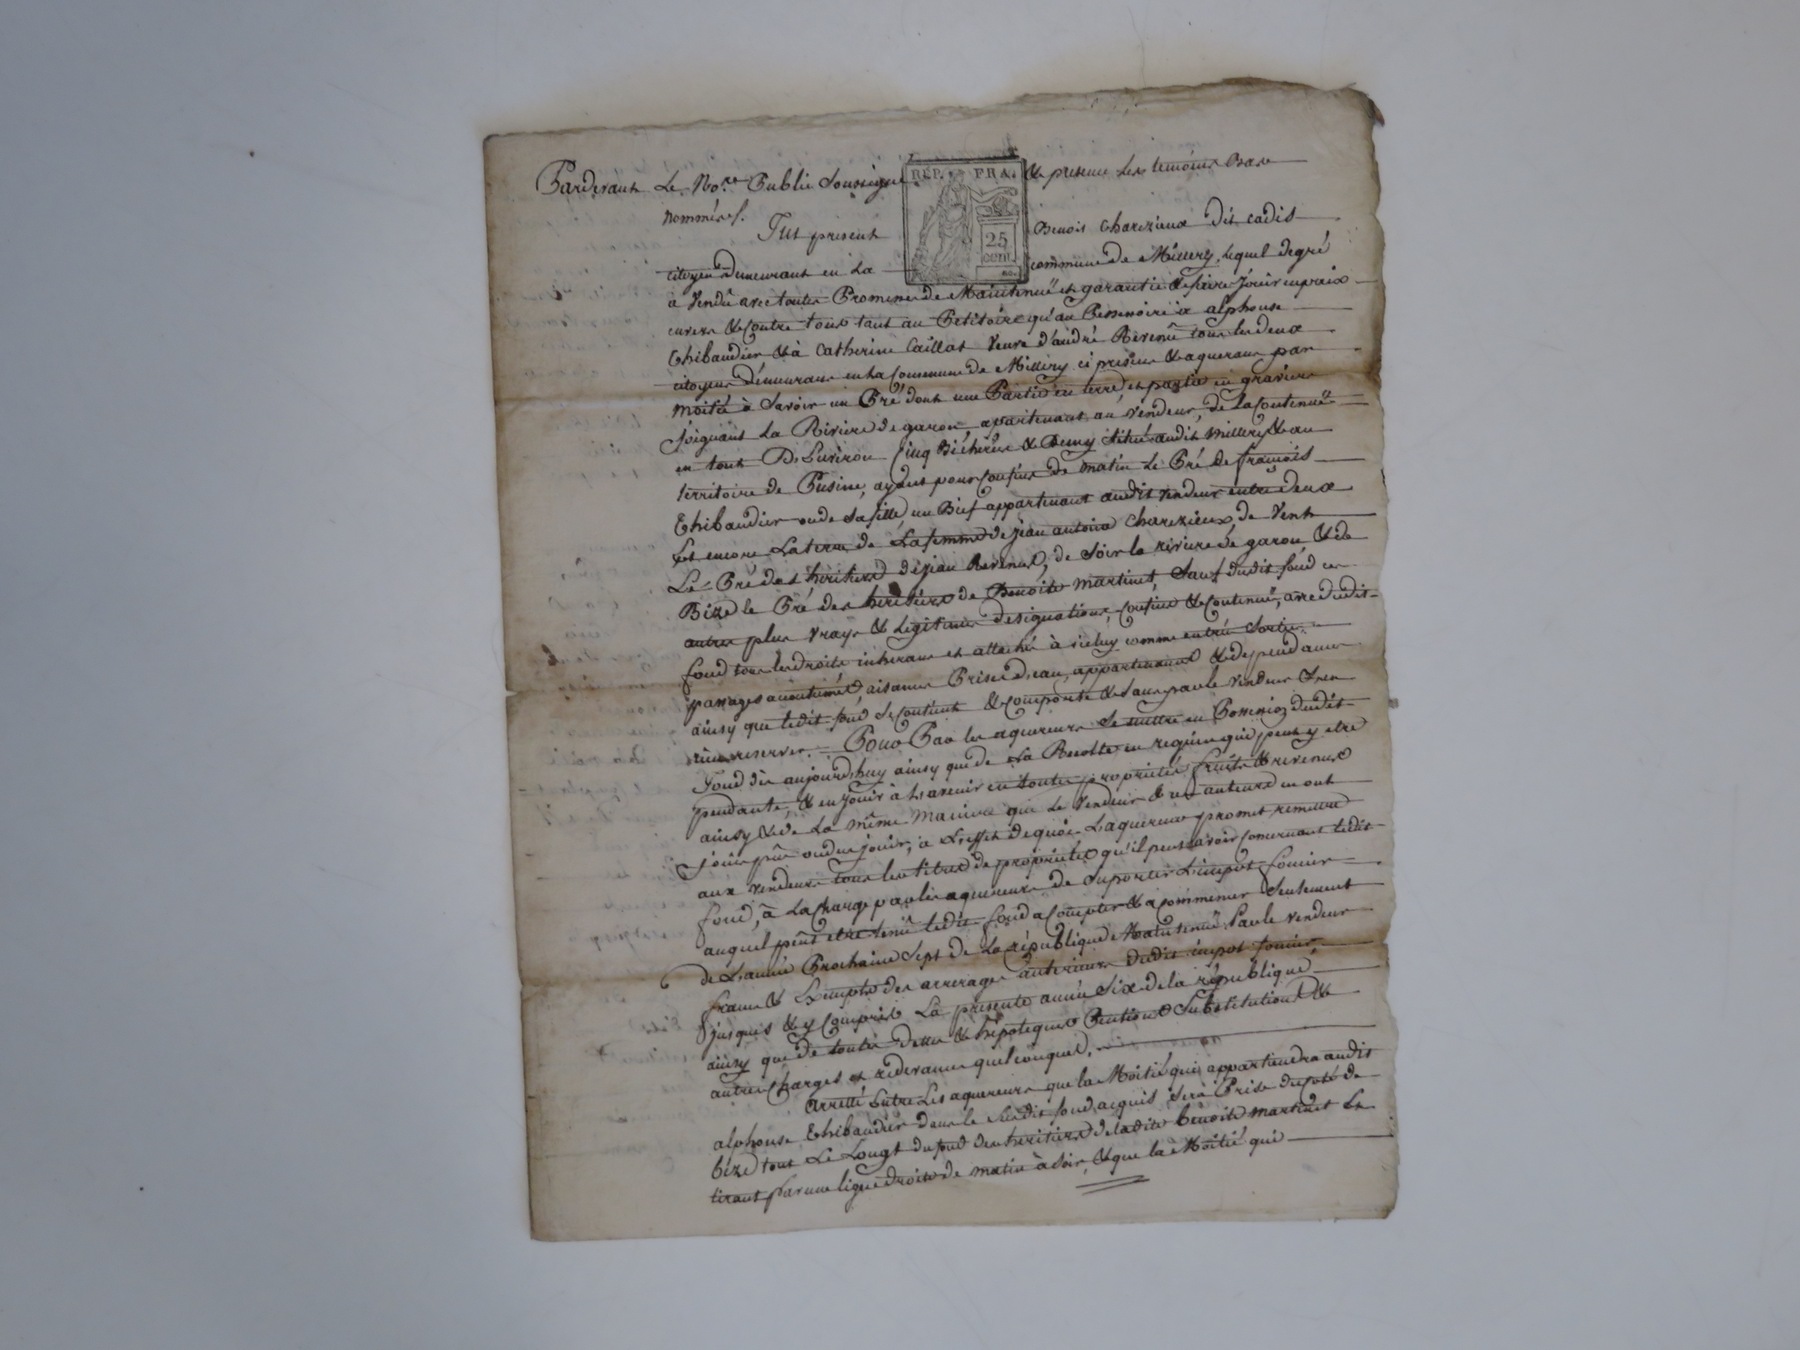 Pardevant Le No.re Public Soussigné & presence Les temoins Bas
nommés.
RÉP. FRA.
25
cent.
Fut present Benoit Charezieux dit cadis
citoyen Demeurant en La commune de Millery, Lequel de gré
a Vendu avec toutes Promesse de Maintenuë et garantie & faire Jouir en paix
envers & Contre tous tant au Petitoire qu'au Possessoire à alphonse
Thibaudier & à Catherine Caillat Veuve d'andré Revenu tous les deux
citoyens Demeurans en La Commune de Millery ci presens & aquerans par
moitié à Savoir un Pré dont une Partie en terre et partie en graviers
Joignant La Riviere de garon, apartenant au Vendeur, de La Contenuë
en tout D'Environ Cinq Bicherées & Demy Situé audit Millery & au
territoire de Pusine, ayant pour Confins de matin Le Pré de françois
Thibaudier ou de Sa fille, un Bief appartenant audit Vendeur entre deux
Et encore La terre de La femme de jean antoine Charezieux, de Vent
Le Pré des heritiers de jean Revenu, de Soir la riviere de garon & de
Bize le Pré des heritiers de Benoite Martinet, Sauf dudit fond ses
autres plus Vrays & Legitimes designations, Confins & Contenuë, avec dudit
fond tous les droits inherans et attachés à iceluy comme entrées Sorties
passages accoutumés, aisances Prises d'eau, appartenances & dependances
ainsy que ledit fond Se Contient & Comporte & Sans par le Vendeur S'en
rien reserver. Pour Par les aquereurs Se mettre en Possession dudit
Fond dès aujourdhuy ainsy que de La Recolte en regain qui peut y etre
pendante, & en Jouir à L'avenir en toutes proprietés fruits & revenus
ainsy & de La même Maniere que Le Vendeur & ses auteurs en ont
Joüis pû ou du jouir, à L'effet de quoi L'aquereur promet remettre
aux Vendeurs tous les titres de proprietés qu'il peut avoir Concernant ledit
fond, à La Charge par les aquereurs de Suporter L'impot foncier
auquel peut etre tenu ledit fond a Compter & a Commencer Seulement
de L'année Prochaine Sept de La république Maintenuë Par le Vendeur
franc & Exempt des arrerages anterieurs dudit impot foncier,
jusques & y Compris La presente année Six de la république,
ainsy que de toutes dettes & hipoteques Pentions Substitutions &
autres Charges et rederances quelconques.
Arretté Entre Les aquereurs que la Moitié qui appartiendra audit
alphonse Thibaudier dans le Susdit fond acquis Sera Prise du Coté de
bize tout Le Longt du fond des heritiers de ladite Benoite Martinet En
tirant par une ligne droite de matin à Soir, & que la Moitié qui